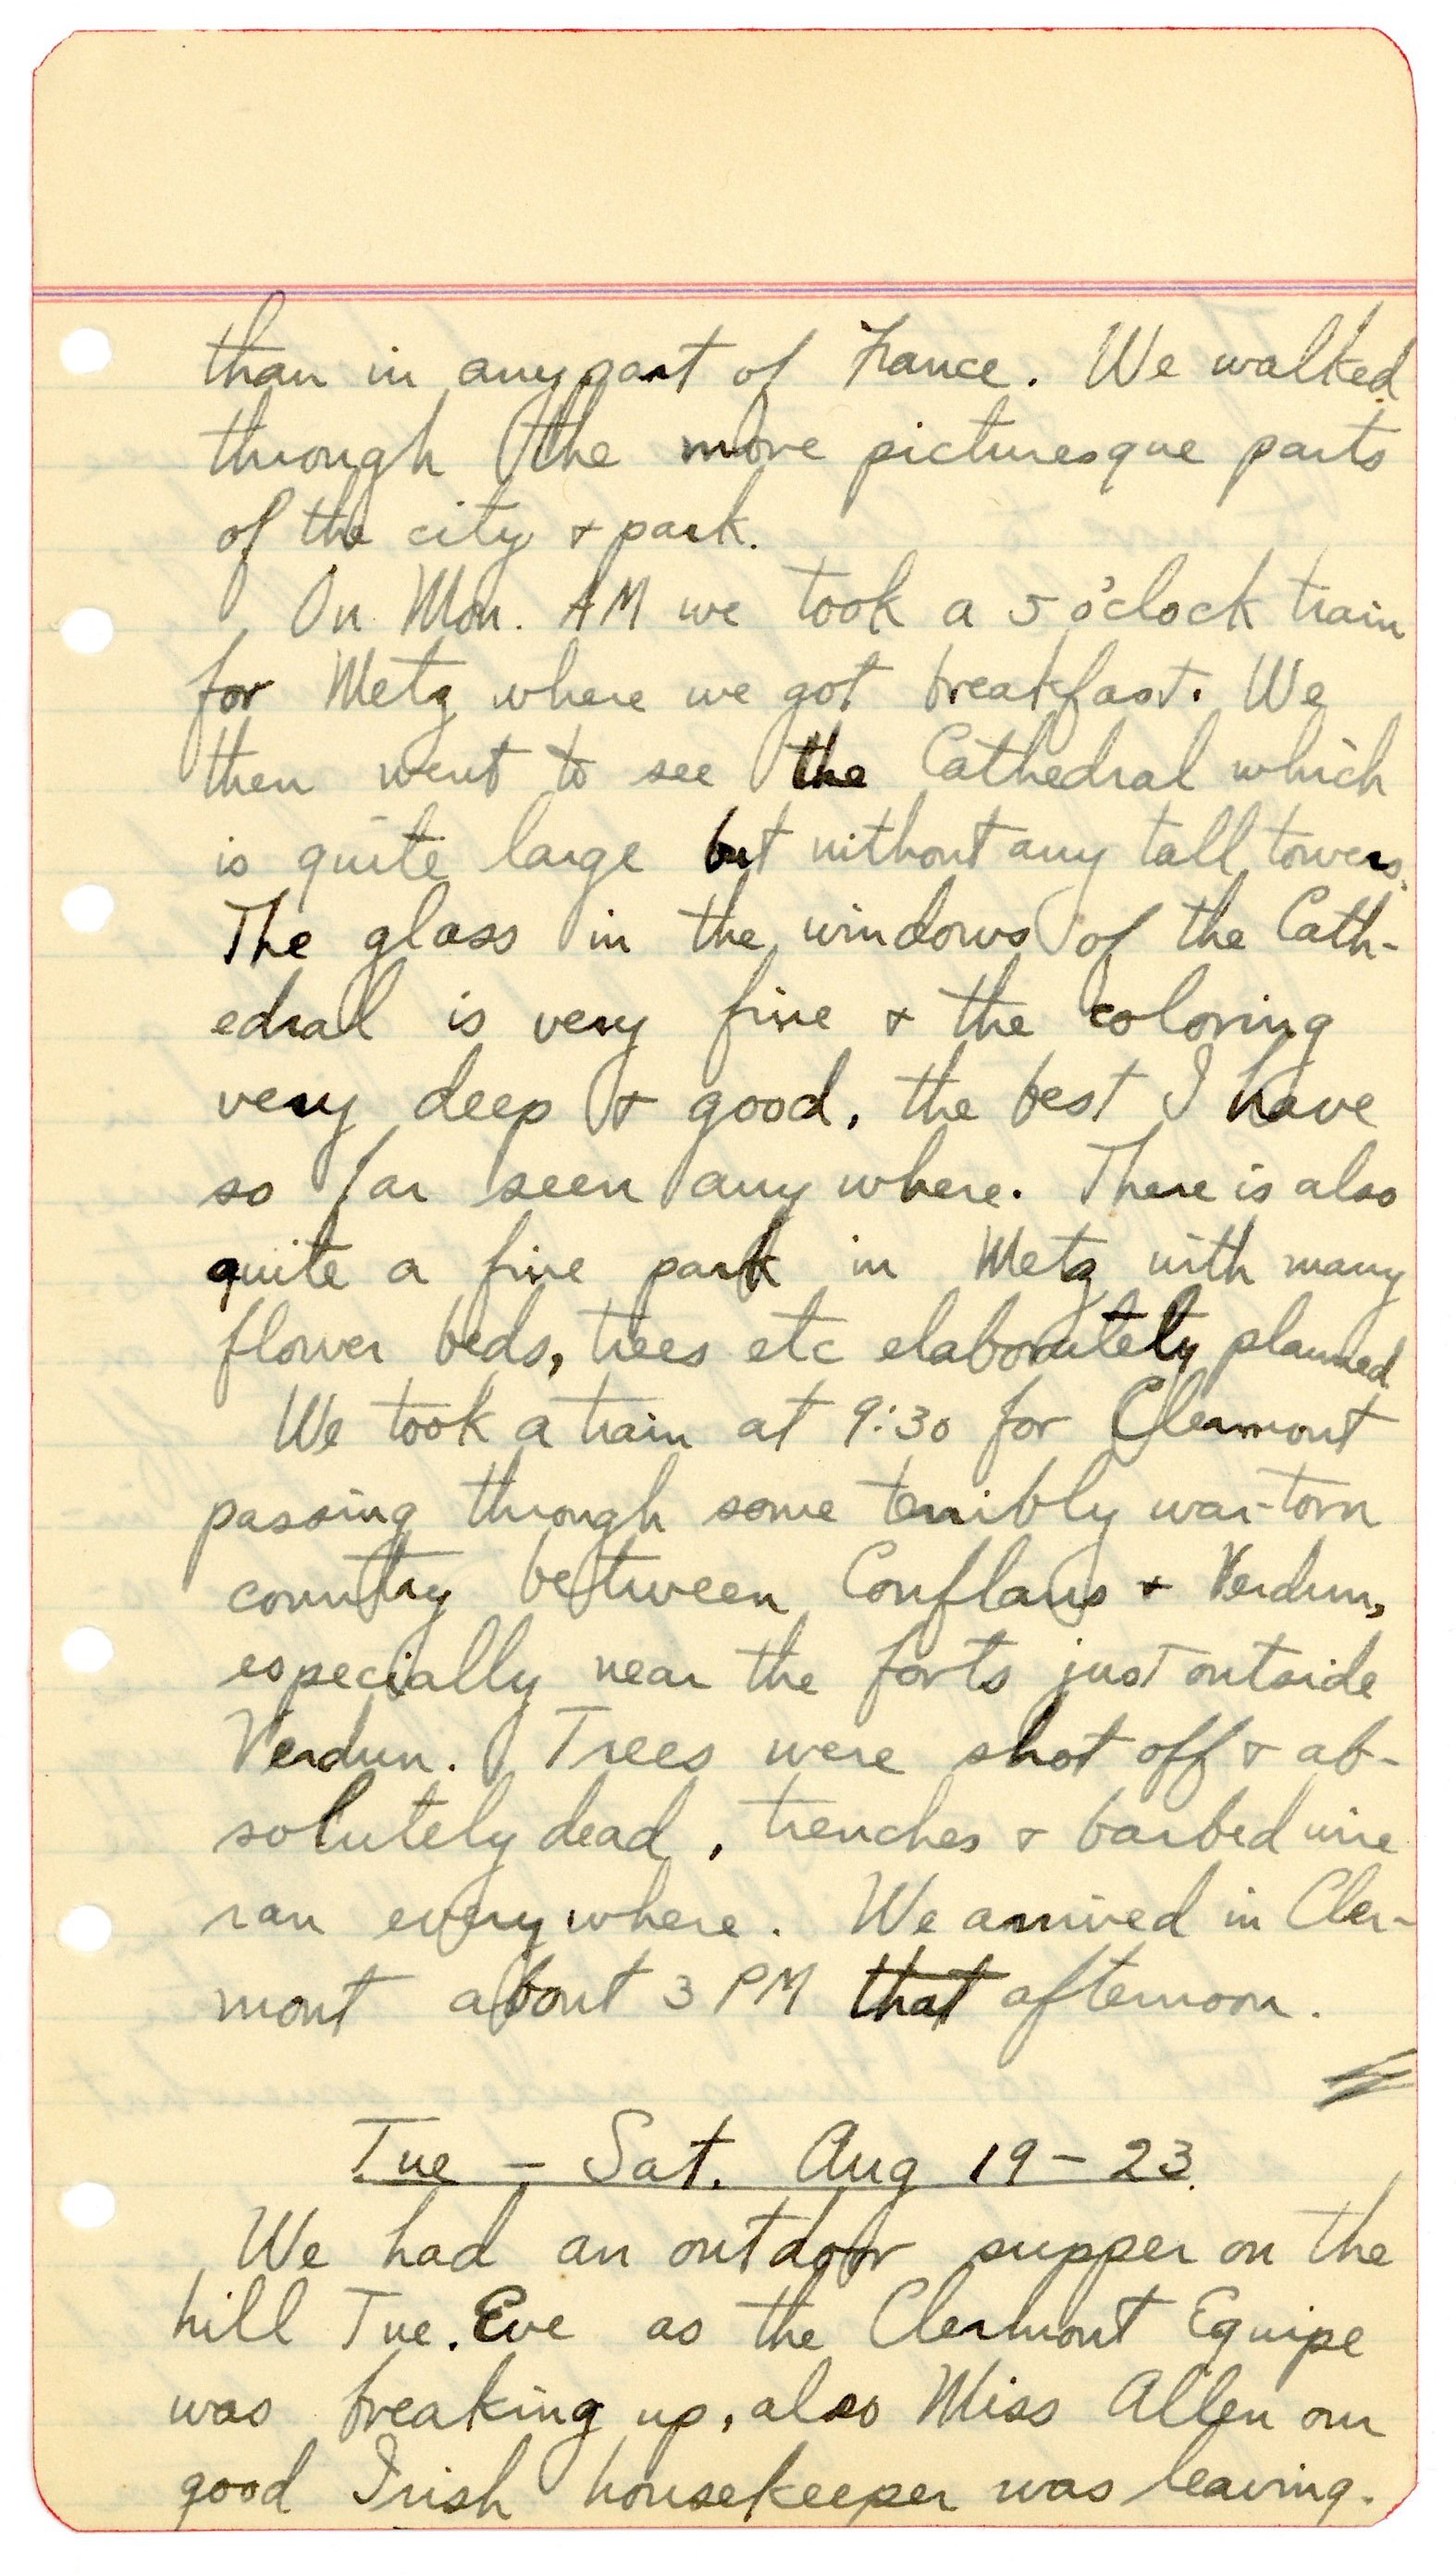 than in any part of France. We walked
through the more picturesque parts
of the city & park.
On Mon. AM we took a 5 o'clock train
for Metz where we got breakfast. We
then went to see the Cathedral which
is quite large but without any tall towers.
The glass in the windows of the Cath-
edral is very fine & the coloring
very deep & good, the best I have
so far seen any where. There is also
quite a fine park in Metz with many
flower beds, trees etc elaborately planned
We took a train at 9:30 for Clermont
passing through some terribly war-torn
country between Conflans & Verdun,
especially near the forts just outside
Verdun. Trees were shot off & ab-
solutely dead, trenches & barbed wire
ran everywhere. We arrived in Cler-
mont about 3 PM that afternoon.
Tue - Sat. Aug 19 - 23.
We had an outdoor supper on the
hill Tue. Eve as the Clermont Equipe
was breaking up, also Miss Allen our
good Irish housekeeper was leaving.